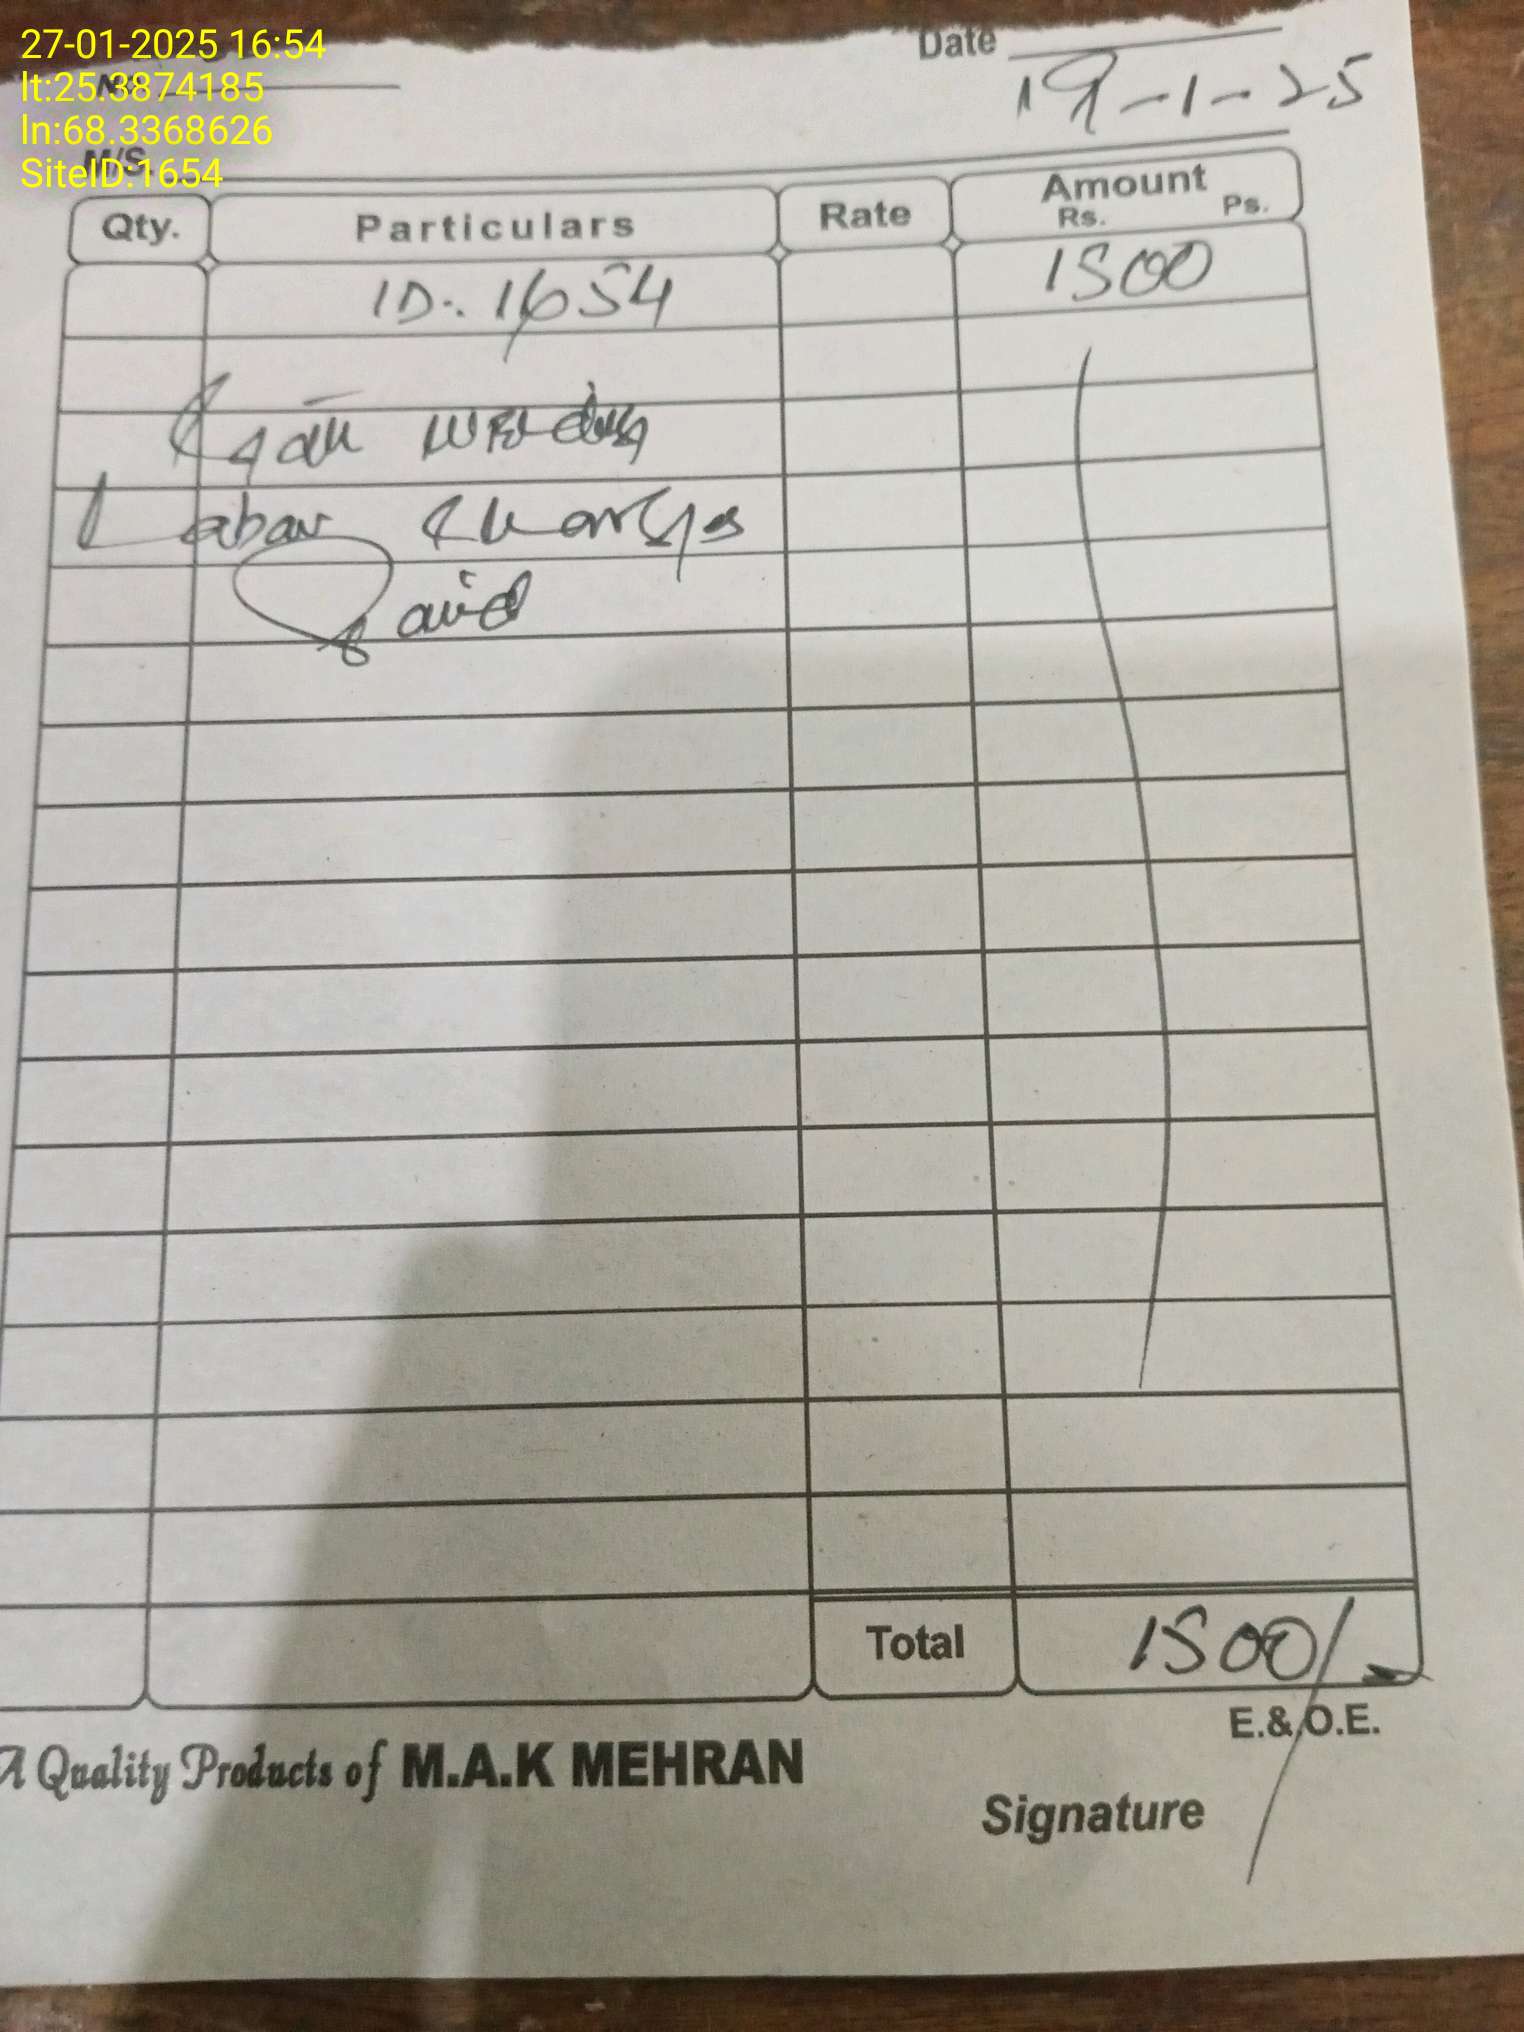 27-01-2025 16:54
lt:25.3874185
ln:68.3368626
SiteID:1654
No.
Date 19-1-25
M/S.
Qty. Particulars Rate Amount
Rs. Ps.
ID:. 1654 1500
welding
Labar Charges
Paid
Total 1500/-
E.&.O.E.
A Quality Products of M.A.K MEHRAN
Signature